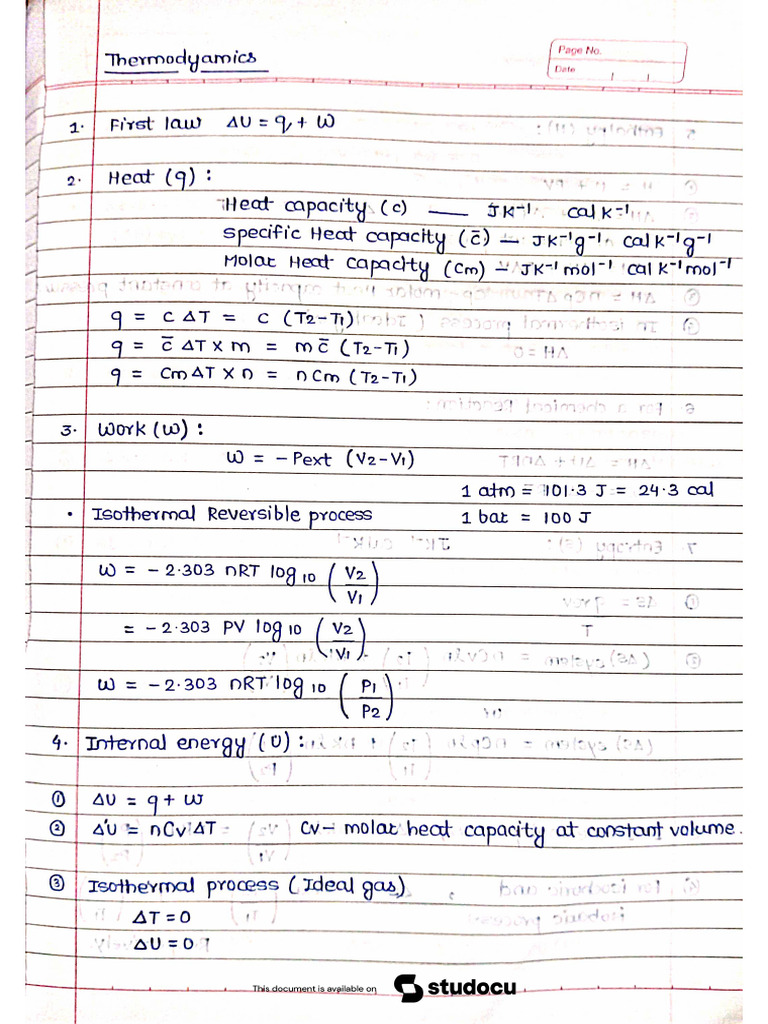 Thermodyamics
Page No.
Date
1. First law ΔU = q + W
2. Heat (q) :
Heat capacity (c) — JK⁻¹ cal k⁻¹
Specific Heat capacity (c̄) — JK⁻¹g⁻¹ cal k⁻¹g⁻¹
Molar Heat Capacity (Cm) — JK⁻¹ mol⁻¹ cal K⁻¹ mol⁻¹
q = C ΔT = C (T2-T1)
q = c̄ ΔT × m = m c̄ (T2-T1)
q = Cm ΔT × n = n Cm (T2-T1)
3. Work (W) :
W = - Pext (V2-V1)
1 atm = 101.3 J = 24.3 cal
• Isothermal Reversible process 1 bat = 100 J
W = - 2.303 nRT log10 (V2/V1)
= - 2.303 PV log10 (V2/V1)
W = - 2.303 nRT log10 (P1/P2)
4. Internal energy (U) :
① ΔU = q + W
② ΔU = nCv ΔT Cv - molar heat capacity at constant volume.
③ Isothermal process (Ideal gas)
ΔT = 0
ΔU = 0
This document is available on studocu